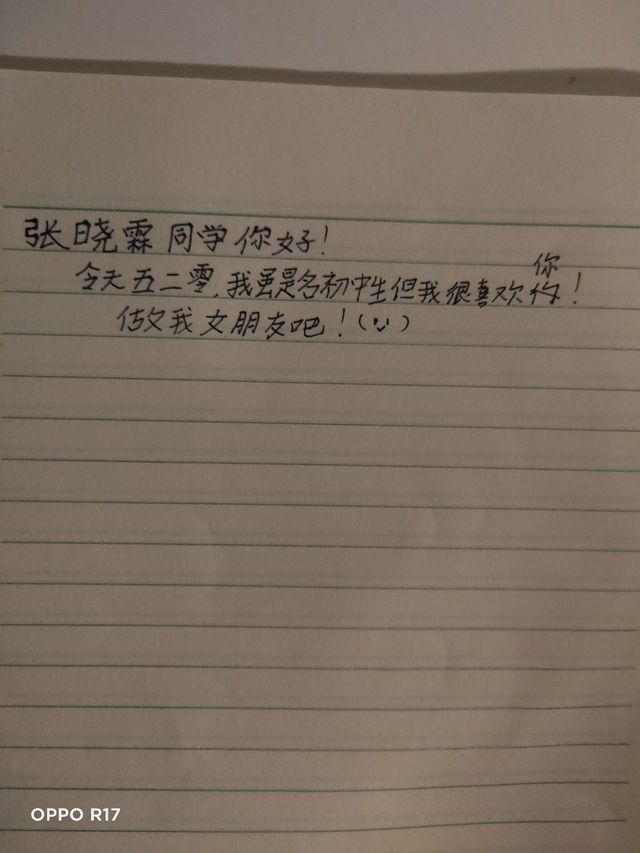 张晓霖同学你好!
今天五二零,我虽是名初中生但我很喜欢你!
做我女朋友吧!(ツ)
OPPO R17